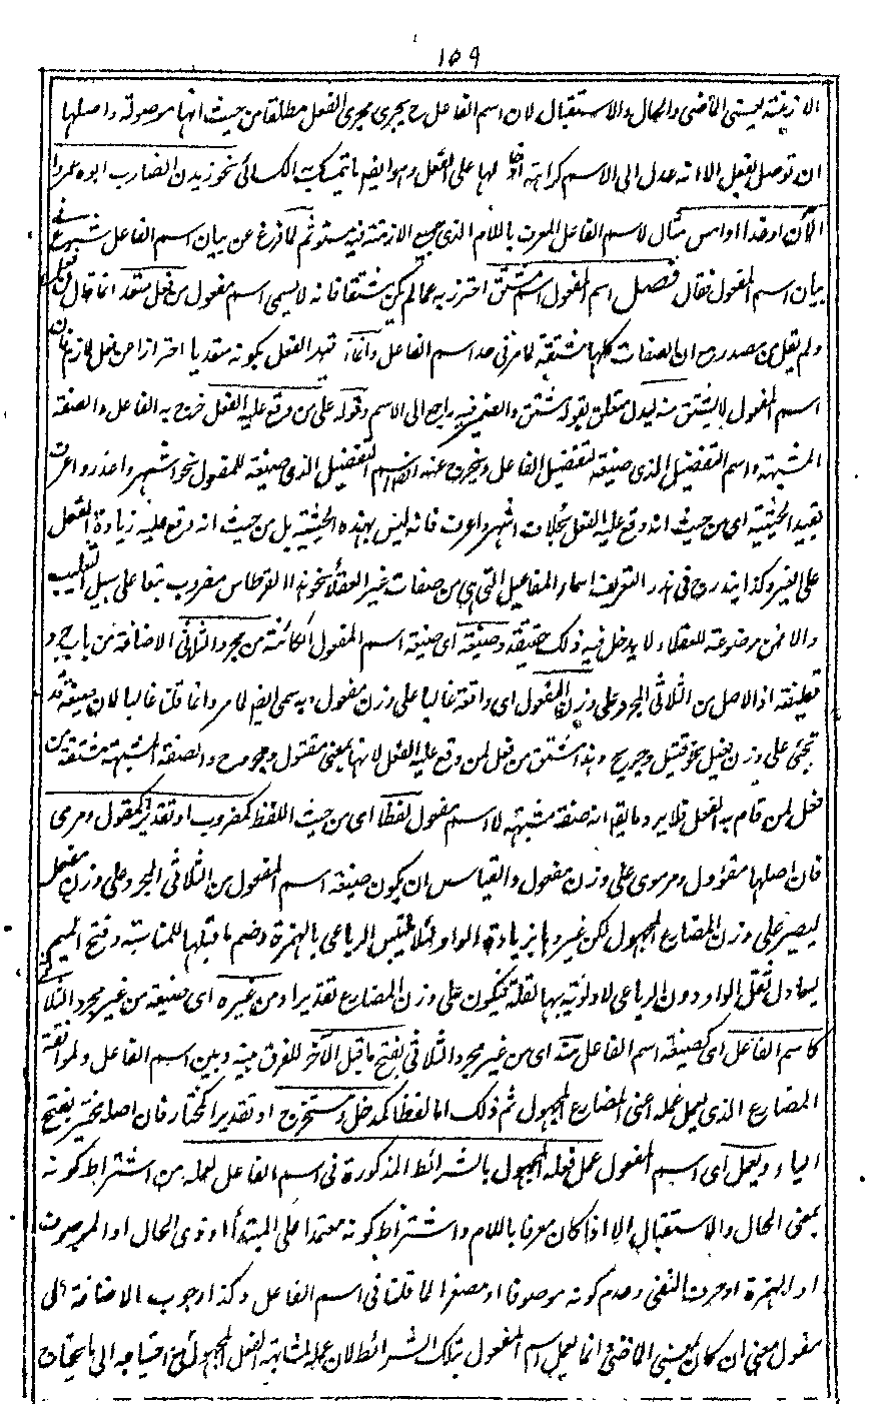 ١٥٩
الازمنة يعنى الماضى والحال والاستقبال لان اسم الفاعل ح يجرى مجرى الفعل مطلقا من حيث انها موصولة واصلها
ان توصل بفعل الا انه عدل الى الاسم كراهة لها على الفعل وهو ايضم ما تمسك به الكسائى نحو زيدن الضارب ابوه عمروا
الآن او غدا او امس مثال لاسم الفاعل المعرف باللام الذى جميع الازمنة فيه مستو ثم لما فرغ عن بيان اسم الفاعل شرع فى
بيان اسم المفعول فقال فصل اسم المفعول اسم مشتق احترز به عما لم يكن مشتقا فانه لا يسمى اسم مفعول من فعل متعد انما قال من فعل
ولم يقل من مصدر مع ان الصفات كلها مشتقة لما مر فى حد اسم الفاعل وانما قيد الفعل بكونه متعديا احترازا من فعل لازم فان
اسم المفعول لا يشتق منه ليدل متعلق بقوله مشتق والضمير فيه راجع الى الاسم وقوله على من وقع عليه الفعل خرج به الفاعل والصفة
المشبهة واسم التفضيل الذى صيغة لتفضيل الفاعل ويخرج عنه ايضم اسم التفضيل الذى صيغة للمفعول نحو اشهر واعذر واعرف
بقيد الحيثية اى من حيث انه وقع عليه الفعل بخلاف اشهر واعرف فانه ليس بهذه الحيثية بل من حيث انه وقع عليه زيادة الفعل
على الغير وكذا يندرج فى هذا التعريف اسماء المفاعيل التى هى من صفات غير العقلاء نحو هذا القرطاس مضروب تبعا على سبيل التغليب
والا فمن موضوعة للعقلاء ولا يدخل فيه ذلك حقيقة وصيغته اى صيغة اسم المفعول الكائنة من مجرد الثلاثى الاضافة من باب جرد
قطيفة اذ الاصل من الثلاثى المجرد على وزن المفعول اى واقعة غالبا على وزن مفعول وبه سمى ايضم لما مر وانما قلنا غالبا لان صيغته قد
تجئ على وزن فعيل نحو قتيل وجريح وهذا مشتق من فعل لمن وقع عليه الفعل لانها بمعنى مقتول ومجروح والصفة المشبهة مشتقة من
فعل لمن قام به الفعل فلا يرد ما يقم انه صفة مشبهة لا اسم مفعول لفظا اى من حيث اللفظ كمضروب او تقديرا كمقول ومرمى
فان اصلها مقوول ومرموى على وزن مفعول والقياس ان يكون صيغة اسم المفعول من الثلاثى المجرد على وزن مفعل
ليصير على وزن المضارع المجهول لكن غيروها بزيادة الواو لئلا يلتبس الرباعى بالهمزة وضم ما قبلها للمناسبة وفتح الميم
ليعادل ثقل الواو دون الرباعى لاولوتيه بها لقلة فيكون على وزن المضارع تقديرا ومن غيره اى صيغته من غير مجرد الثلاثى
كاسم الفاعل اى كصيغة اسم الفاعل منه اى من غير مجرد الثلاثى بفتح ما قبل الآخر للفرق بينه وبين اسم الفاعل ولموافقة
المضارع الذى يعمل عمله اعنى المضارع المجهول ثم ذلك اما لفظا كمدخل ومستخرج او تقديرا كمختار فان اصله مختير بفتح
الياء ويعمل اى اسم المفعول عمل فعله المجهول بالشرائط المذكورة فى اسم الفاعل لعمله من اشتراط كونه
بمعنى الحال والاستقبال الا اذا كان معرفا باللام واشتراط كونه معتمدا على المبتدأ او ذى الحال او الموصوف
او الهمزة او حرف النفى وعدم كونه موصوفا او مصغرا لما قلنا فى اسم الفاعل وكذا وجوب الاضافة الى
مفعول معنى ان كان بمعنى الماضى وانما يعمل اسم المفعول بتلك الشرائط لان عمله لمشابهة الفعل المجهول مع احتياجه الى ما يحتاج